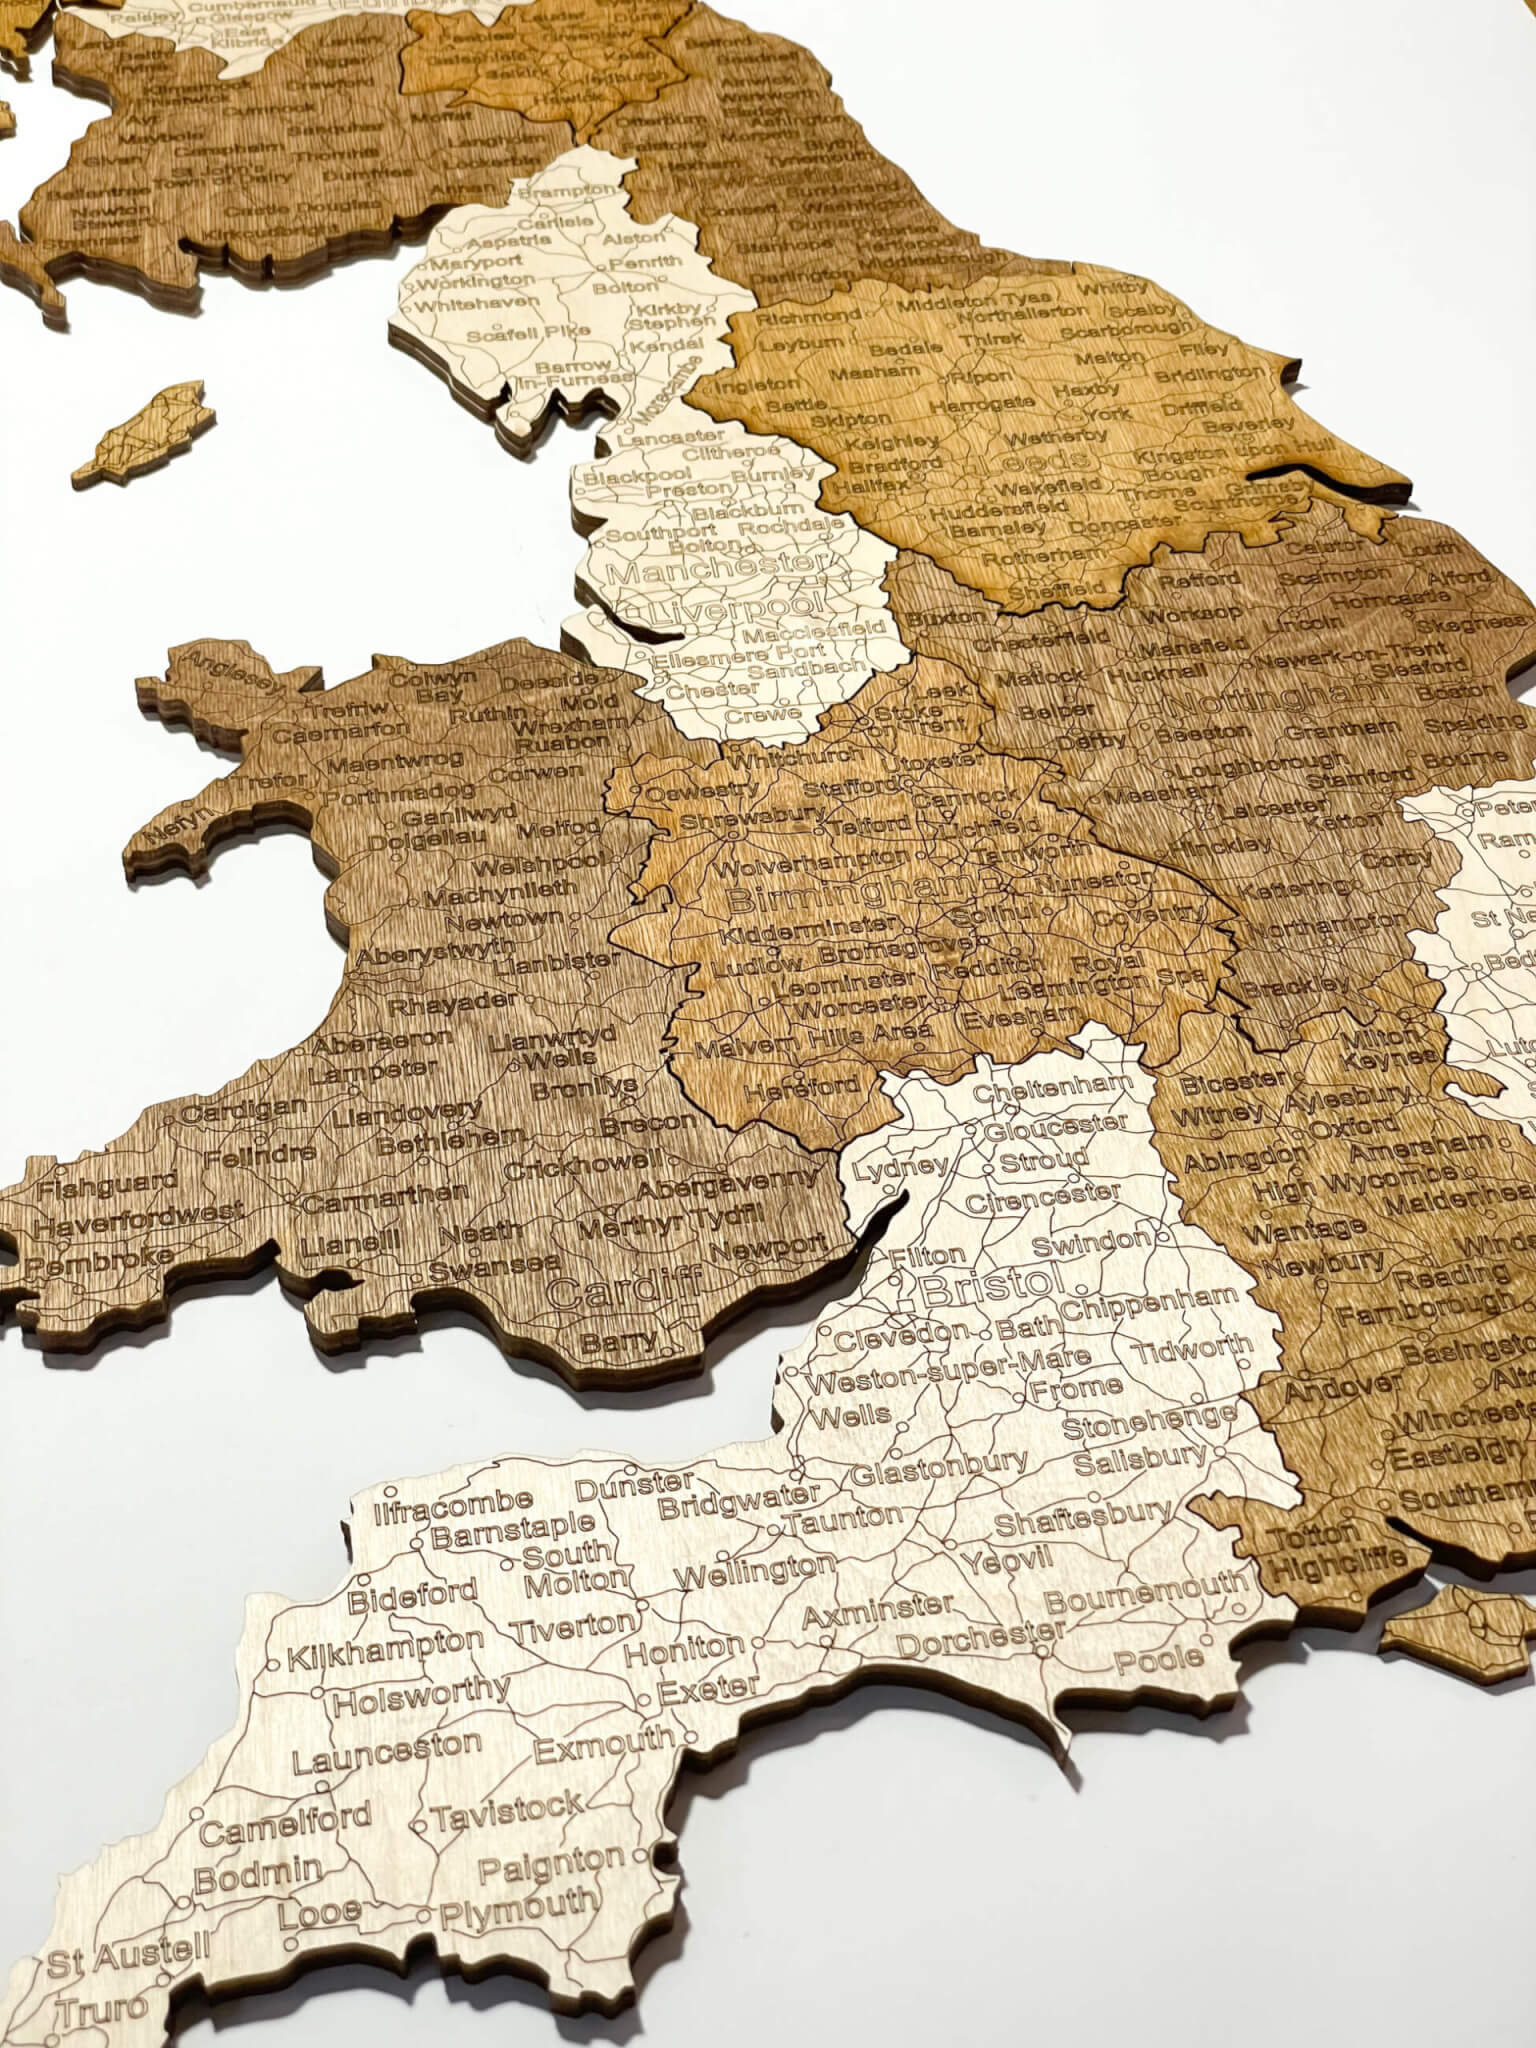 Cumbernauld
Paisley
Glasgow
East
Kilbride
Hawick
Cumnock
Sanquhar
Moffat
Thornhill
Dumfries
Annan
Langholm
Lockerbie
St John's
Town of Dalry
Castle Douglas
Kirkcudbright
Newton
Girvan
Ballantrae
Otterburn
Hexham
Tynemouth
Sunderland
Washington
Consett
Stanhope
Darlington
Middlesbrough
Brampton
Carlisle
Aspatria
Alston
Maryport
Penrith
Workington
Bolton
Whitehaven
Kirkby
Stephen
Scafell Pike
Kendal
Barrow
In-Furness
Morecambe
Lancaster
Clitheroe
Blackpool
Burnley
Preston
Blackburn
Southport
Rochdale
Bolton
Manchester
Liverpool
Macclesfield
Ellesmere Port
Sandbach
Chester
Crewe
Whitby
Richmond
Middleton Tyas
Northallerton
Scalby
Scarborough
Leyburn
Bedale
Thirsk
Malton
Filey
Ingleton
Masham
Ripon
Haxby
Bridlington
Settle
Skipton
Harrogate
York
Driffield
Beverley
Keighley
Wetherby
Kingston upon Hull
Bradford
Leeds
Bough
Halifax
Wakefield
Thorne
Grimsby
Scunthorpe
Huddersfield
Barnsley
Doncaster
Rotherham
Sheffield
Caistor
Louth
Retford
Scampton
Alford
Buxton
Worksop
Horncastle
Chesterfield
Lincoln
Skegness
Mansfield
Newark-on-Trent
Matlock
Hucknall
Sleaford
Nottingham
Boston
Belper
Derby
Beeston
Grantham
Spalding
Loughborough
Stamford
Bourne
Measham
Leicester
Ketton
Hinckley
Corby
Kettering
Northampton
Brackley
Anglesey
Colwyn
Bay
Deeside
Mold
Trefriw
Ruthin
Caernarfon
Wrexham
Ruabon
Maentwrog
Corwen
Trefor
Porthmadog
Nefyn
Ganllwyd
Dolgellau
Meifod
Welshpool
Machynlleth
Newtown
Aberystwyth
Llanbister
Rhayader
Aberaeron
Llanwrtyd
Wells
Lampeter
Bronllys
Cardigan
Llandovery
Bethlehem
Brecon
Felindre
Crickhowell
Fishguard
Carmarthen
Abergavenny
Haverfordwest
Neath
Merthyr Tydfil
Llanelli
Newport
Pembroke
Swansea
Cardiff
Barry
Leek
Stoke
on Trent
Whitchurch
Utoxeter
Oswestry
Stafford
Cannock
Shrewsbury
Telford
Lichfield
Wolverhampton
Tamworth
Birmingham
Nuneaton
Kidderminster
Solihul
Coventry
Ludlow
Bromsgrove
Redditch
Royal
Leamington Spa
Leominster
Worcester
Malvern Hills Area
Evesham
Hereford
Milton
Keynes
Bicester
Aylesbury
Witney
Oxford
Abingdon
Amersham
High Wycombe
Maidenhea
Wantage
Newbury
Winds
Reading
Farnborough
Basingsto
Andover
Alto
Wincheste
Eastleigh
Southam
Totton
Highcliffe
Peter
Ram
St Ne
Bedf
Luto
Cheltenham
Gloucester
Lydney
Stroud
Cirencester
Filton
Swindon
Bristol
Chippenham
Clevedon
Bath
Tidworth
Weston-super-Mare
Frome
Wells
Stonehenge
Glastonbury
Salisbury
Ilfracombe
Dunster
Bridgwater
Barnstaple
Taunton
Shaftesbury
South
Molton
Wellington
Yeovil
Bideford
Axminster
Bournemouth
Kilkhampton
Tiverton
Honiton
Dorchester
Poole
Holsworthy
Exeter
Launceston
Exmouth
Camelford
Tavistock
Bodmin
Paignton
Looe
Plymouth
St Austell
Truro